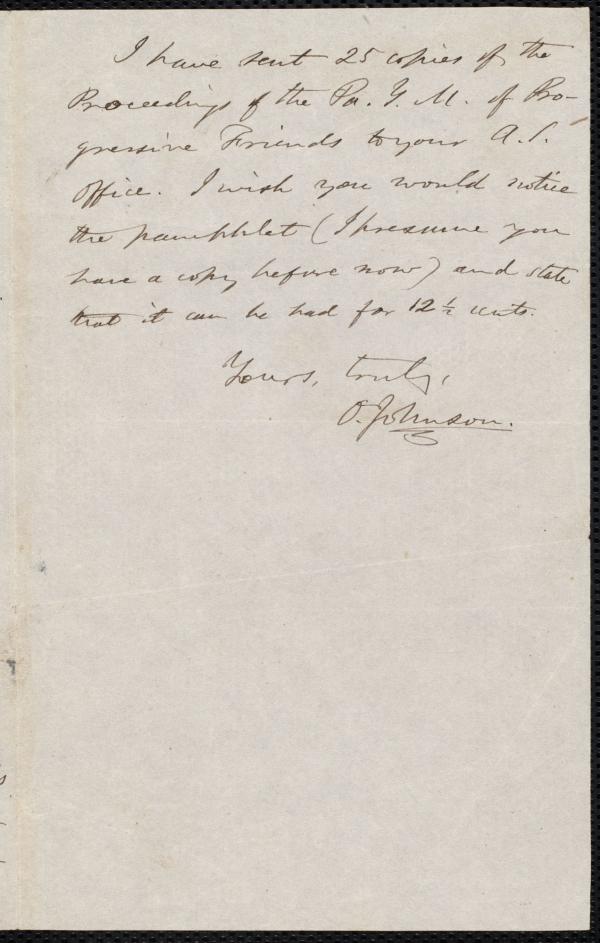 I have sent 25 copies of the
Proceedings of the Pa. Y. M. of Pro-
gressive Friends to your A. S.
office. I wish you would notice
the pamphlet (I presume you
have a copy before now) and state
that it can be had for 12 ½ cents.
Yours, truly,
O. Johnson.